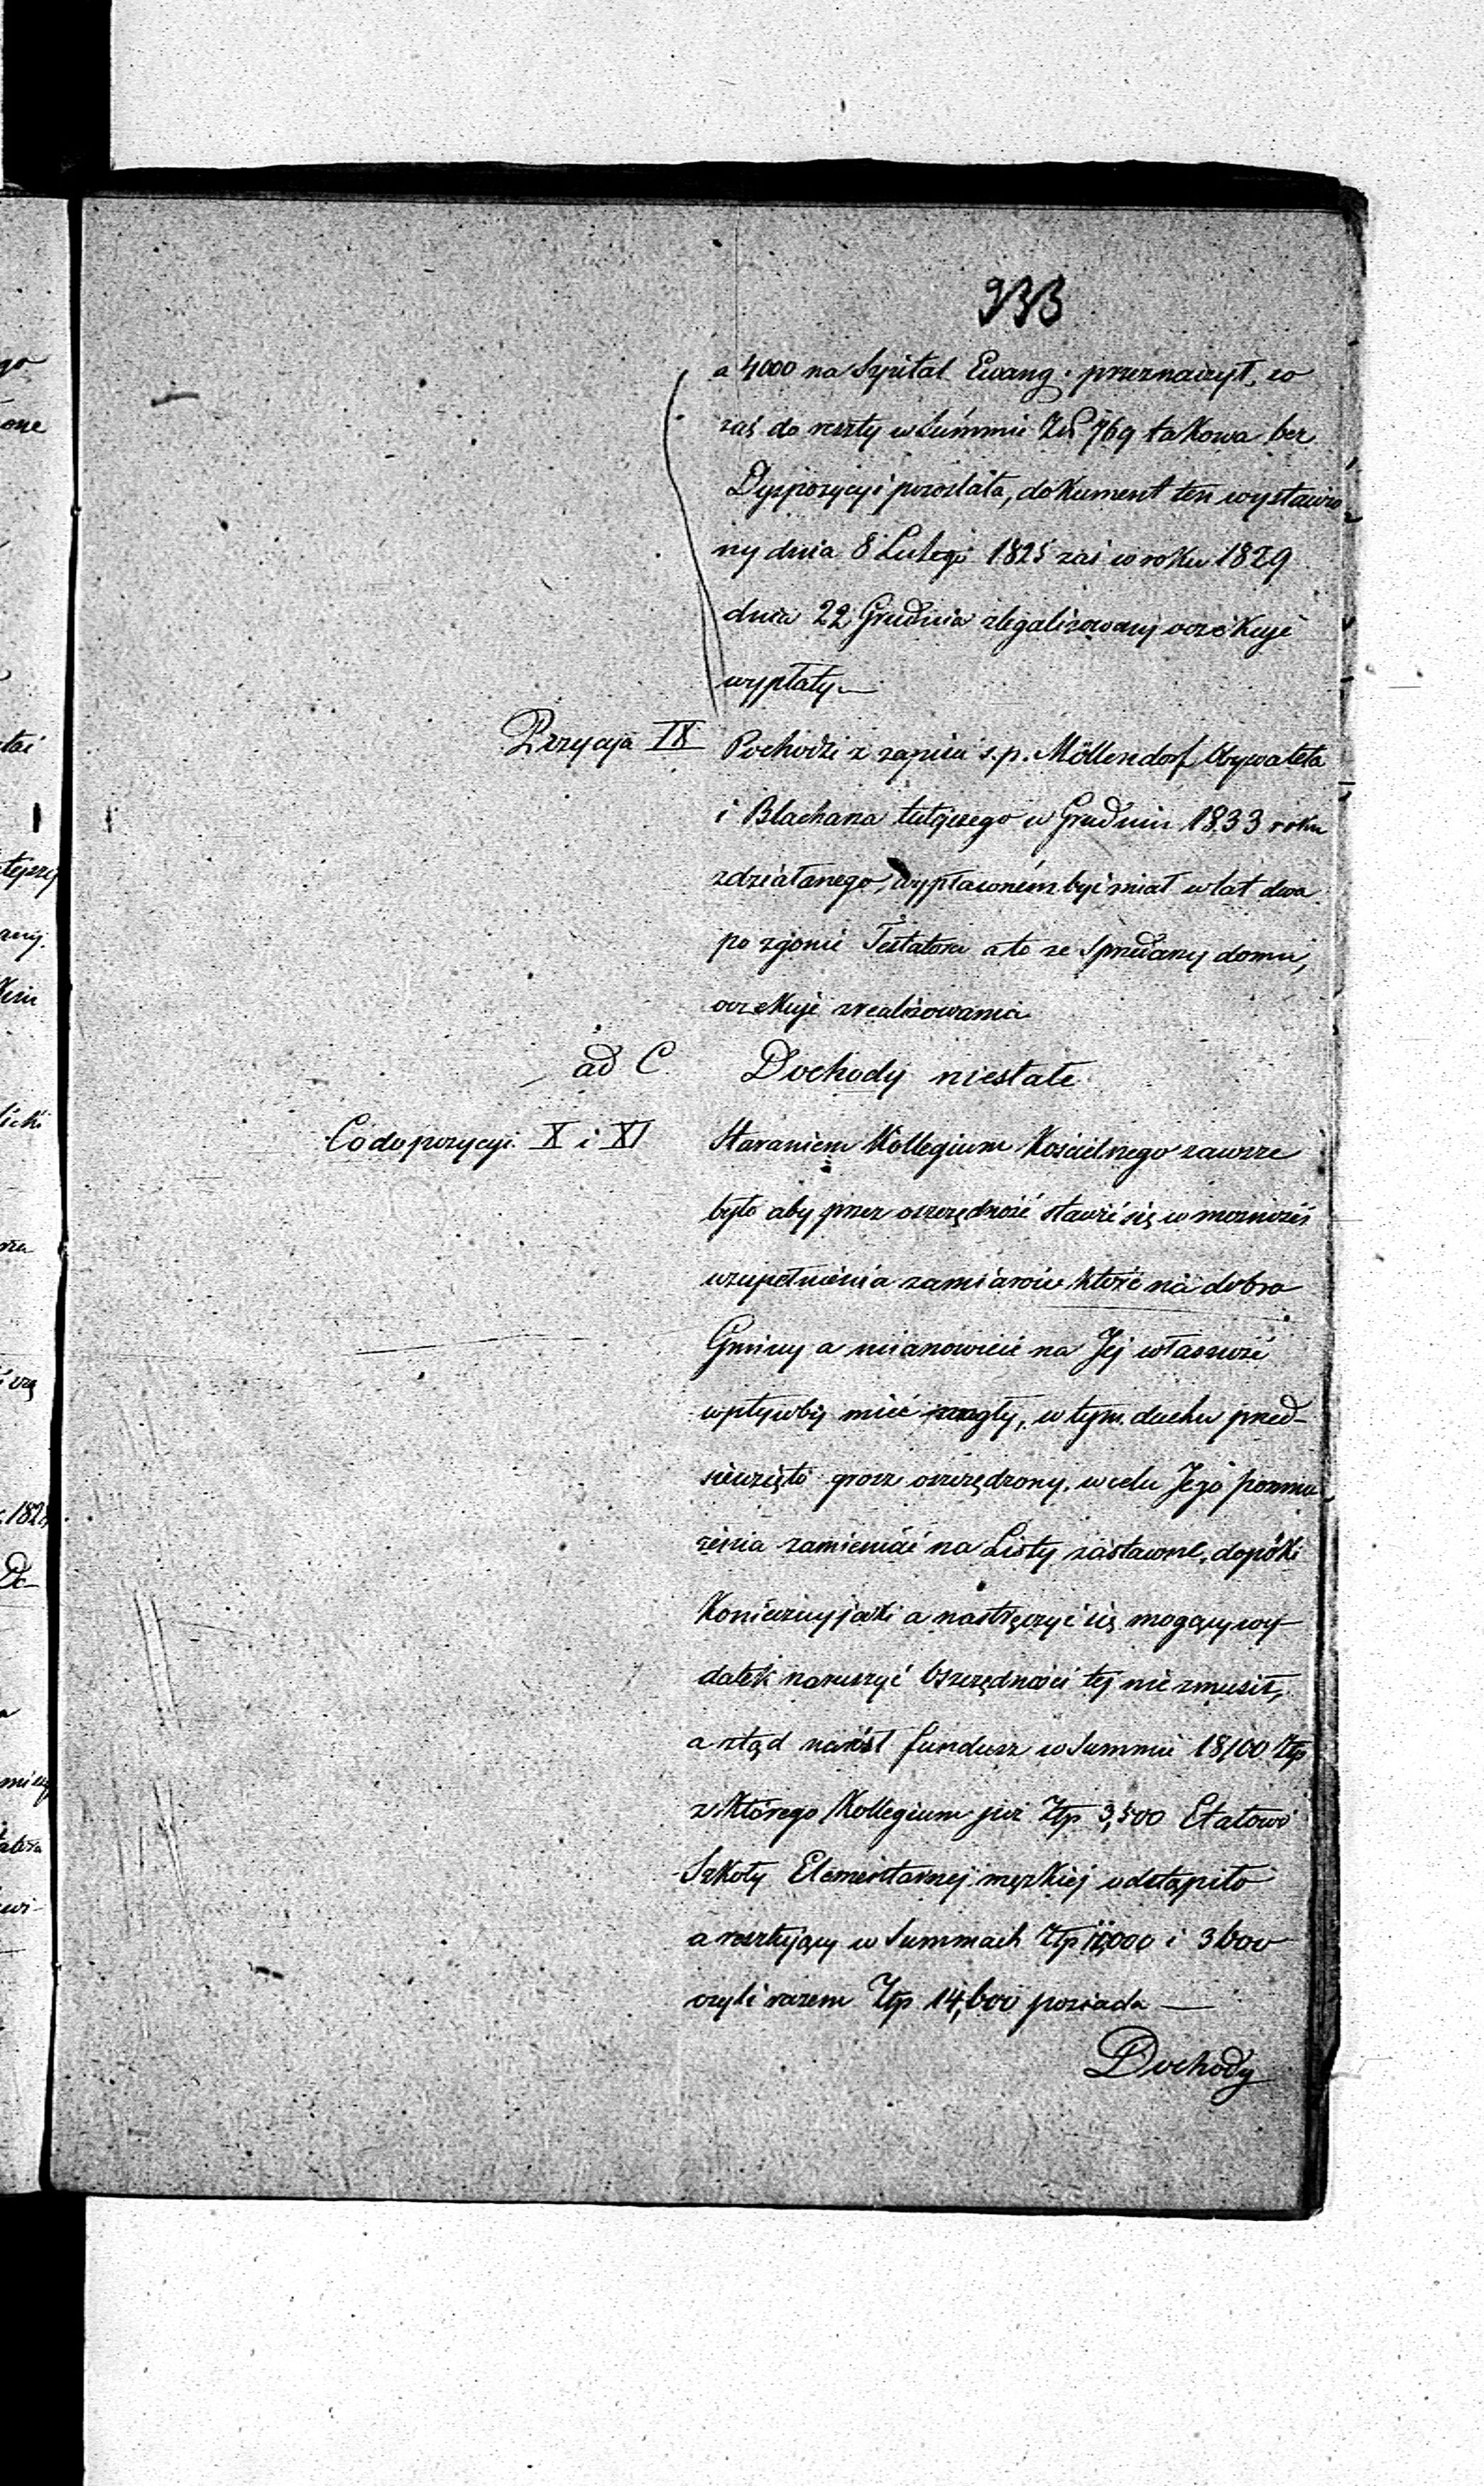 933
a 4000 na Szpital Ewang. przeznaczył, co
zaś do reszty w Summie Złł 769 takowa bez
Dyspozycyi pozostała, dokument ten wystawio-
ny dnia 8 Lutego 1825 zaś w roku 1829
dnia 22 Grudnia zlegalizowany oczekuje
wypłaty.—
Pozycyja IX Pochodzi z zapisu s.p. Möllendorf Obywatela
i Blacharza tutejszego w Grudniu 1833 roku
zdziałanego, wypłaconém być miał w lat dwa
po zgonie Testatora a to ze Sprzedaży domu,
oczekuje zrealizowania
ad C. Dochody niestałe
Co do pozycyi X i XI Staraniem Kollegium Kościelnego zawsze
było aby przez oszczędność stawić się w możności
uzupełnienia zamiarów które na dobro
Gminy a mianowicie na Jej własność
wpływby mieć mogły, w tym duchu przed-
sięwzięto grosz oszczędzony, w celu Jego pomno
żenia zamieniać na Listy zastawne, dopóki
Konieczny jaki a nastręczyć się mogący wy-
datek naruszyć Oszczędności tej nie zmusił,
a ztąd narósł fundusz w Summie 18100 Złp
z którego Kollegium już Złp 3,500 Etatowi
Szkoły Elementarnej męzkiej odstąpiło
a resztujący w Summach Złp 11,000 i 3600
czyli razem Złp 14,600 posiada —
Dochody